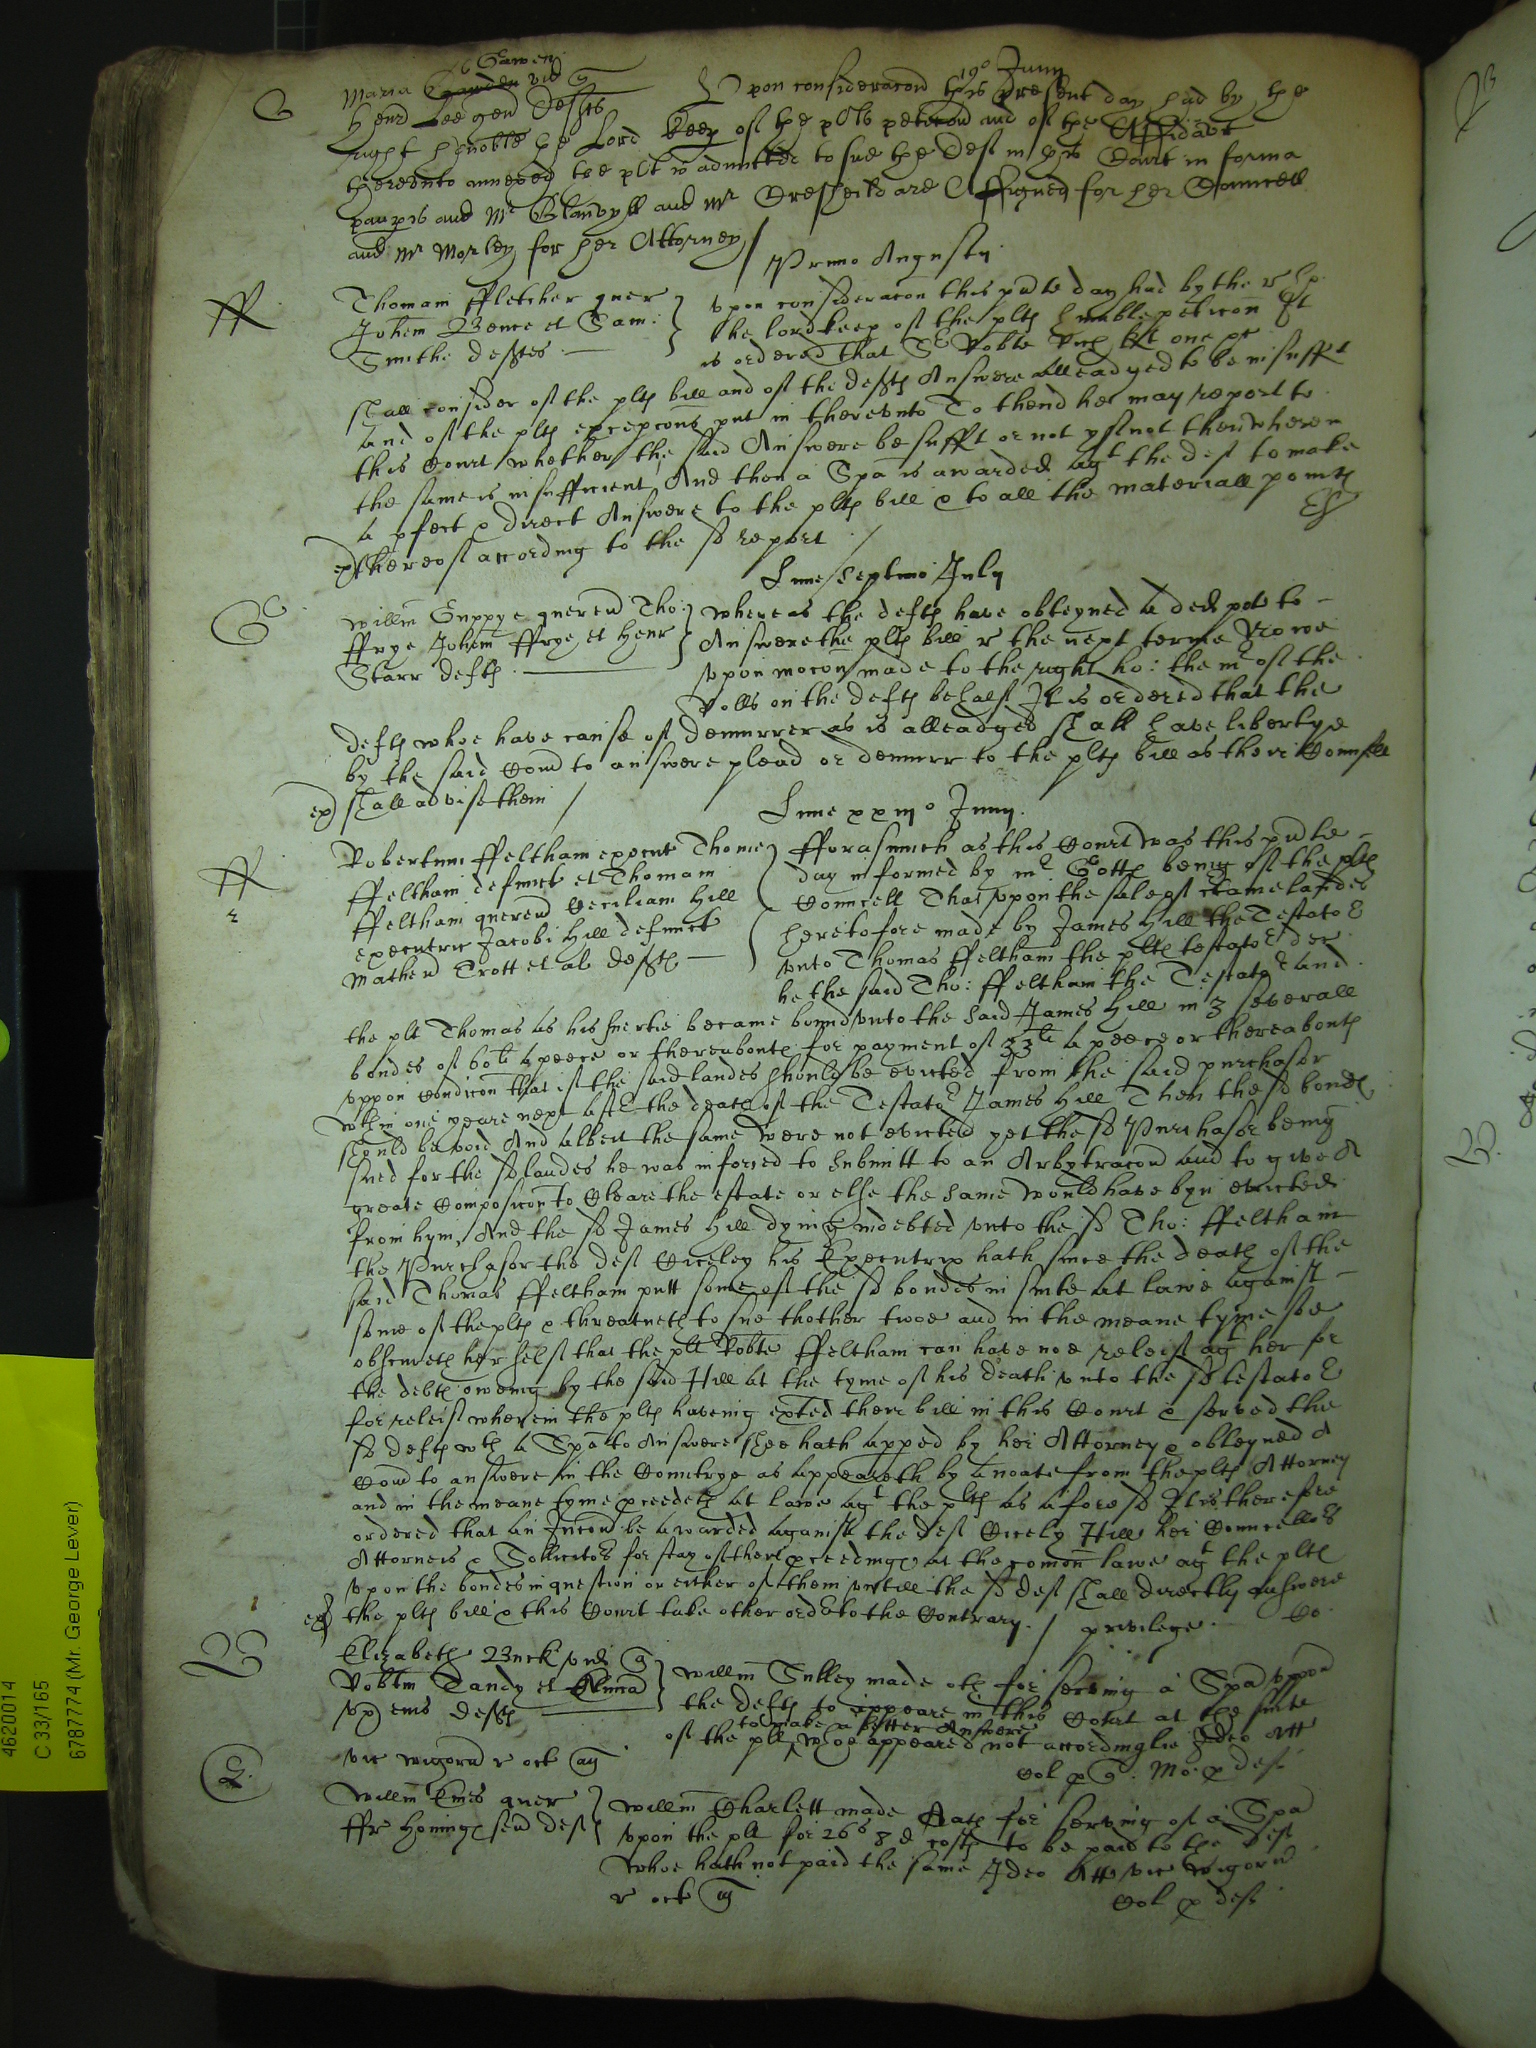 19o Junij
G Maria Gawen vid q
Henr Lee gen defts
Upon consideracon this present day had by the
right honoble the Lord Keep of the plts peticon and of the Affidavt
thereunto annexed the plt is admitted to sue the deft in this Court in forma
paupis and Mr Glanvyll and Mr Dresheild are Assigned for her Councell
and Mr Morley for her Attorney /
Primo Augusty
ff Thomam ffletcher quer
Johem Bence et Sam:
Smithe deftes
Upon consideracon this pnte day had by the r ho:
the lord keep of the pltes humble peticon It
is ordered that Sr Robte Rich kt one
shall consider of the pltes bill and of the deftes Answere alleadged to be insufft
and of the pltes excepcons put in thereunto To thend hee may report to
this Court whether the said Answere be sufft or not yf not then wherein
the same is insufficient And then a Spa is awarded agt the deft to make
a pfect & direct Answere to the pltes bill & to all the materiall pointes
ex thereof according to the sd report /
Lune septimo July
G Willm Guppye querend Tho:
ffrye Johem ffrye et Henr
Starr deftes
Whereas the deftes have obteyned a ded pot to
Answere the pltes bill r the next terme Nowe
upon mocon made to the right ho: the mr of the
Rolls on the deftes behalf It is ordered that the
deftes whoe have cause of demurrer as is alleadged shall have libertye
by the said Com to answere plead or demurr to the pltes bill as their Counsell
ex shall advise them /
Lune xxiijo Junij
ff Robertum ffeltham execut Thome
ffeltham defunct et Thomam
ffeltham querend Ceciliam Hill
executric Jacobi Hill defunct
Mathew Trott et al deftes
fforasmuch as this Court was this pnte
day informed by mr Gottes being of the pltes
Councell That upon the sale of ctaine landes
heretofore made by James Hill the Testator
unto Thomas ffeltham the pltes testator
he the said Tho: ffeltham the Testator and
the plt Thomas as his suertie became bound unto the said James Hill in 3 severall
bondes of 60li a peece or thereaboutes for payment of 33li a peece or thereaboutes
uppon Condicon that if the said landes should be evicted from the said purchasor
wthin one yeare next after the death of the Testator James Hill Then the sd bondes
should be void And albeit the same were not evicted yet the sd Purchasor being
sued for the sd landes he was inforced to submitt to an Arbytracon and to give A
greate Composicon to Cleare the estate or else the same would have byn evicted
from hym, And the sd James Hill dying indebted unto the sd Tho: ffeltham
the Purchasor the deft Ciceley his Executrix hath since the death of the
said Thomas ffeltham putt some of the sd bondes in suite at lawe against
some of the pltes & threatneth to sue thother twoe and in the meane tyme soe
obscureth her self that the plt Robte ffeltham can have noe releif agt her for
the debtes oweing by the said Hill at the tyme of his death unto the sd testator
for releif wherein the pltes haveing exted their bill in this Court & served the
sd deftes wth a Spa to Answere shee hath apped by her Attorney & obteyned A
Com to answere in the Countrye as appeareth by a noate from the pltes Attorney
and in the meane tyme pceedeth at lawe agt the pltes as afore sd It is therefore
ordered that an Iniuncon be awarded against the deft Cicely Hill her Councellors
Attorneis & Sollicitors for stay of their pceedinges at the comon lawe agt the pltes
upon the bondes in question or either of them untill the sd deft shall directly answere
ex the pltes bill & this Court take other order to the Contrary. / privilege. Co
B Elizabeth Buck vid q
Robtm Tandy et
ux eius deftes
Willm Sulley made oth for serving a Spa uppon
the deftes to appeare in this Court at the suite
to make a better Answere
of the plt, whoe appeared not accordinglie Ideo Att
vic wigorn r oct
Col p q. Mo: p def
E. Willm Eines quer
ffr Homing sen deft
Willm Charlett made Oath for serving of a Spa
upon the plt for 26s 8d costes to be paid to the deft
whoe hath not paid the same Ideo Att vic wigorn
r oct
Col p def
4620014
C 33/165
6787774 (Mr. George Lever)